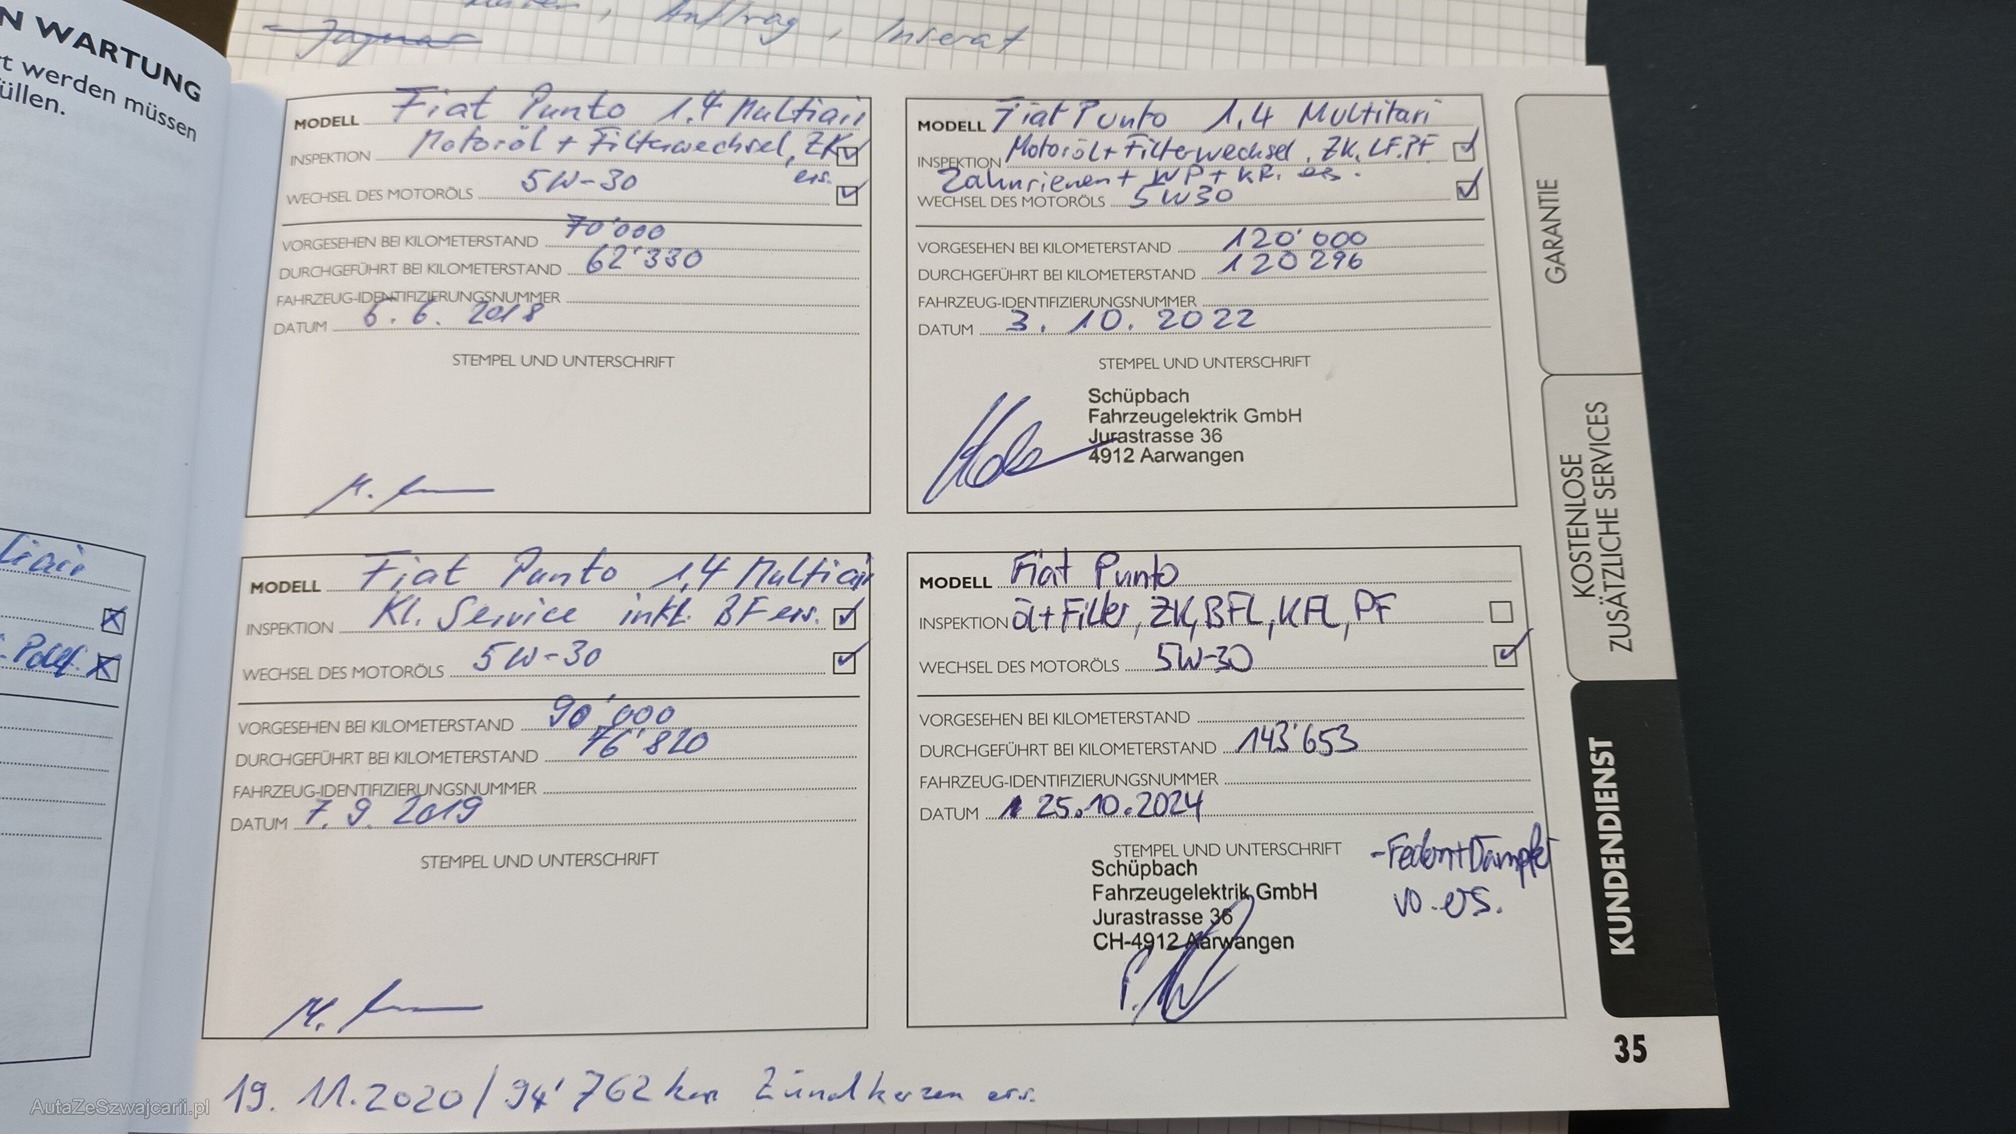 Auftrag, Inserat
Jaguar
N WARTUNG
t werden müssen
üllen.
MODELL Fiat Punto 1,4 Multiair
INSPEKTION Motoröl + Filterwechsel, ZK
ers.
WECHSEL DES MOTORÖLS 5W-30
VORGESEHEN BEI KILOMETERSTAND 70'000
DURCHGEFÜHRT BEI KILOMETERSTAND 62'330
FAHRZEUG-IDENTIFIZIERUNGSNUMMER
DATUM 6. 6. 2018
STEMPEL UND UNTERSCHRIFT
MODELL Fiat Punto 1,4 Multitari
INSPEKTION Motoröl + Filterwechsel, ZK, LF, PF
Zahnriemen + WP + KR. ers.
WECHSEL DES MOTORÖLS 5W30
VORGESEHEN BEI KILOMETERSTAND 120'000
DURCHGEFÜHRT BEI KILOMETERSTAND 120296
FAHRZEUG-IDENTIFIZIERUNGSNUMMER
DATUM 3. 10. 2022
STEMPEL UND UNTERSCHRIFT
Schüpbach
Fahrzeugelektrik GmbH
Jurastrasse 36
4912 Aarwangen
MODELL Fiat Punto 1,4 Multiair
INSPEKTION Kl. Service inkl. BF ers.
WECHSEL DES MOTORÖLS 5W-30
VORGESEHEN BEI KILOMETERSTAND 90'000
DURCHGEFÜHRT BEI KILOMETERSTAND 76'820
FAHRZEUG-IDENTIFIZIERUNGSNUMMER
DATUM 7. 9. 2019
STEMPEL UND UNTERSCHRIFT
MODELL Fiat Punto
INSPEKTION Öl+Filter, ZK, BFL, KFL, PF
WECHSEL DES MOTORÖLS 5W-30
VORGESEHEN BEI KILOMETERSTAND
DURCHGEFÜHRT BEI KILOMETERSTAND 143'653
FAHRZEUG-IDENTIFIZIERUNGSNUMMER
DATUM 25.10.2024
STEMPEL UND UNTERSCHRIFT
Schüpbach
Fahrzeugelektrik GmbH
Jurastrasse 36
CH-4912 Aarwangen
-Federn+Dämpfer
vo. ers.
19. 11. 2020 / 94'762 km Zündkerzen ers.
GARANTIE
KOSTENLOSE
ZUSÄTZLICHE SERVICES
KUNDENDIENST
35
AutaZeSzwajcarii.pl